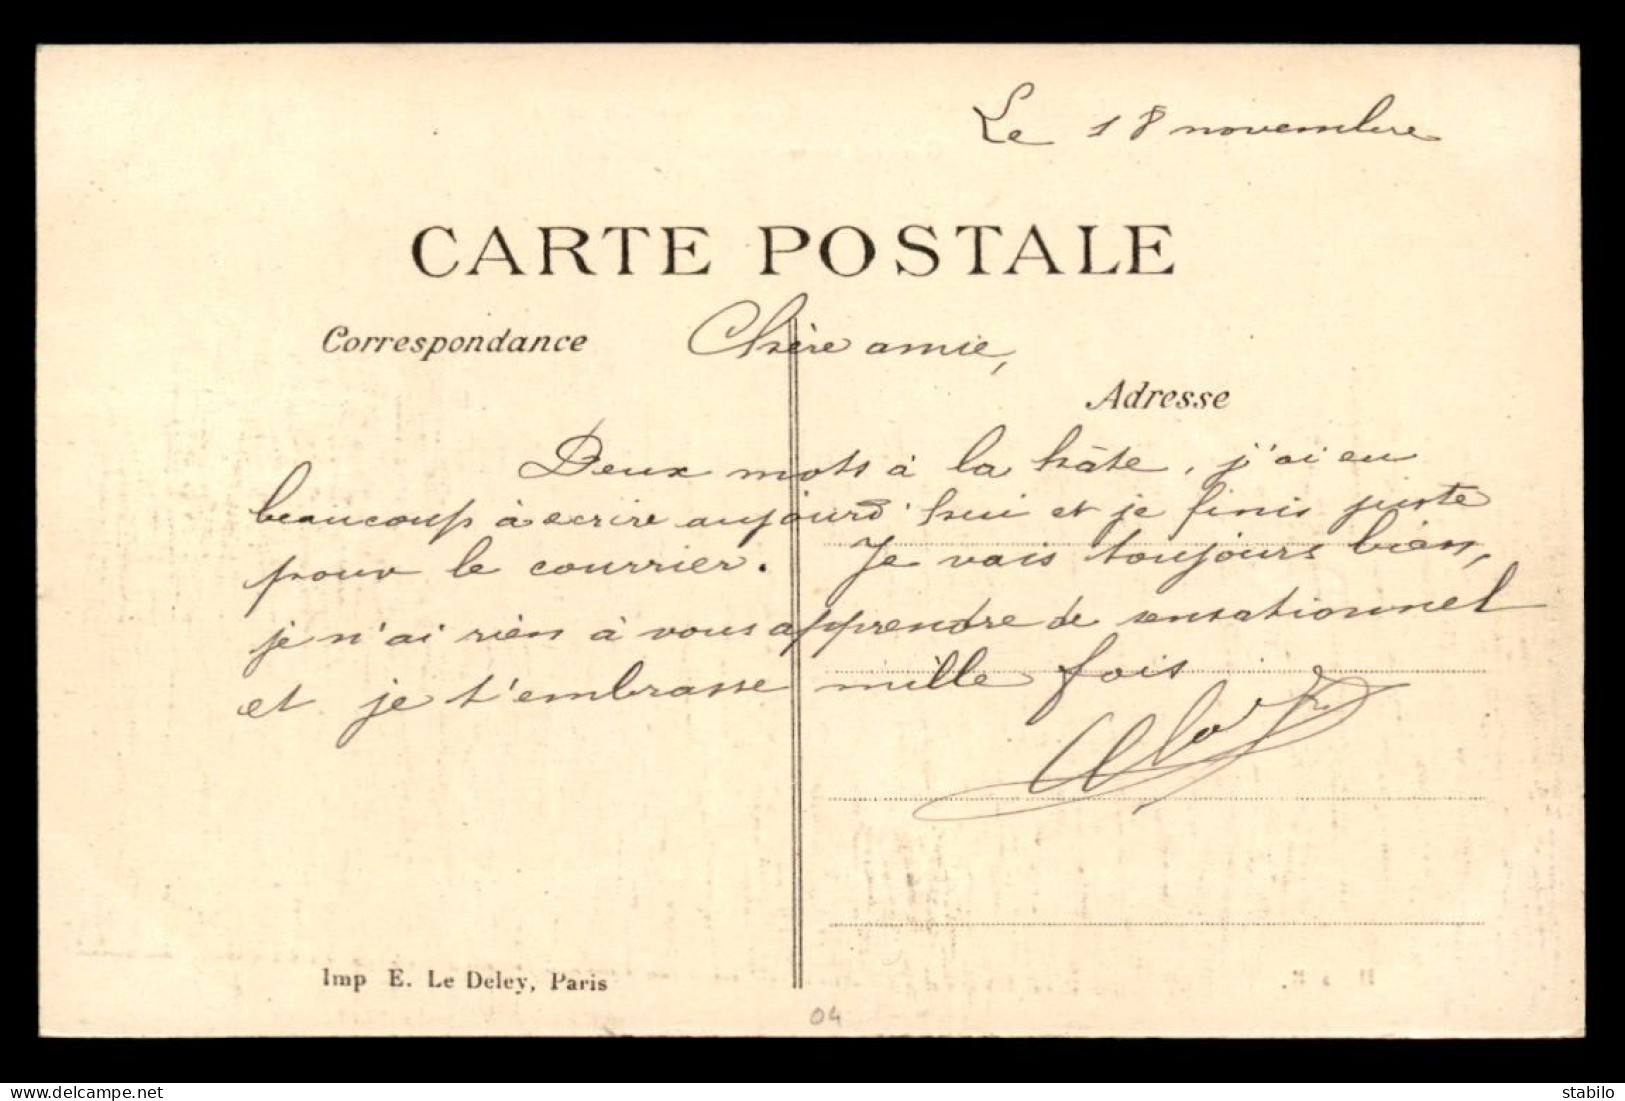 Le 18 novembre
CARTE POSTALE
Correspondance
Chère amie,
Adresse
Deux mots à la hâte, j'ai eu
beaucoup à écrire aujourd'hui et je finis juste
pour le courrier. Je vais toujours bien,
je n'ai rien à vous apprendre de sensationnel
et je t'embrasse mille fois
Imp E. Le Deley, Paris
04
stabilo